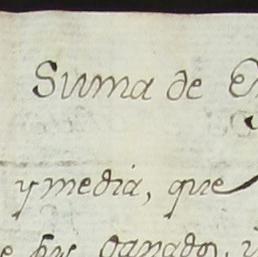 Suma de
y media, que
ganado, y